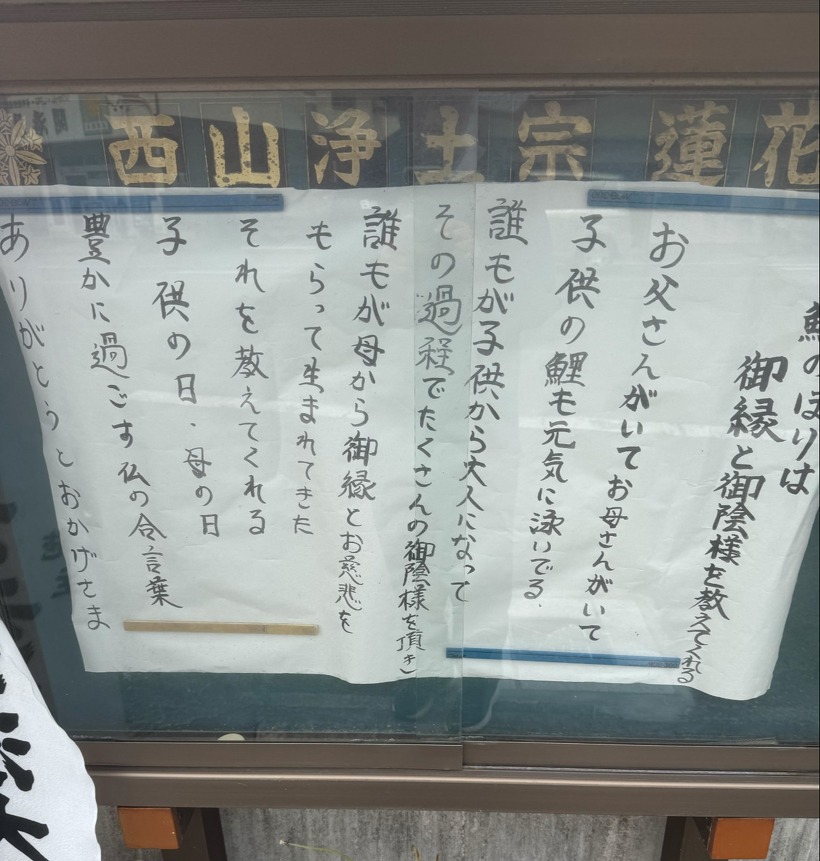 西山浄土宗 蓮花
鯉のぼりは
御縁と御陰様を教えてくれる
お父さんがいてお母さんがいて
子供の鯉も元気に泳いでる.
誰もが子供から大人になって
その過程でたくさんの御陰様を頂き
誰もが母から御縁とお慈悲を
もらって生まれてきた
それを教えてくれる
子供の日.母の日
豊かに過ごす私の合言葉
ありがとうとおかげさま